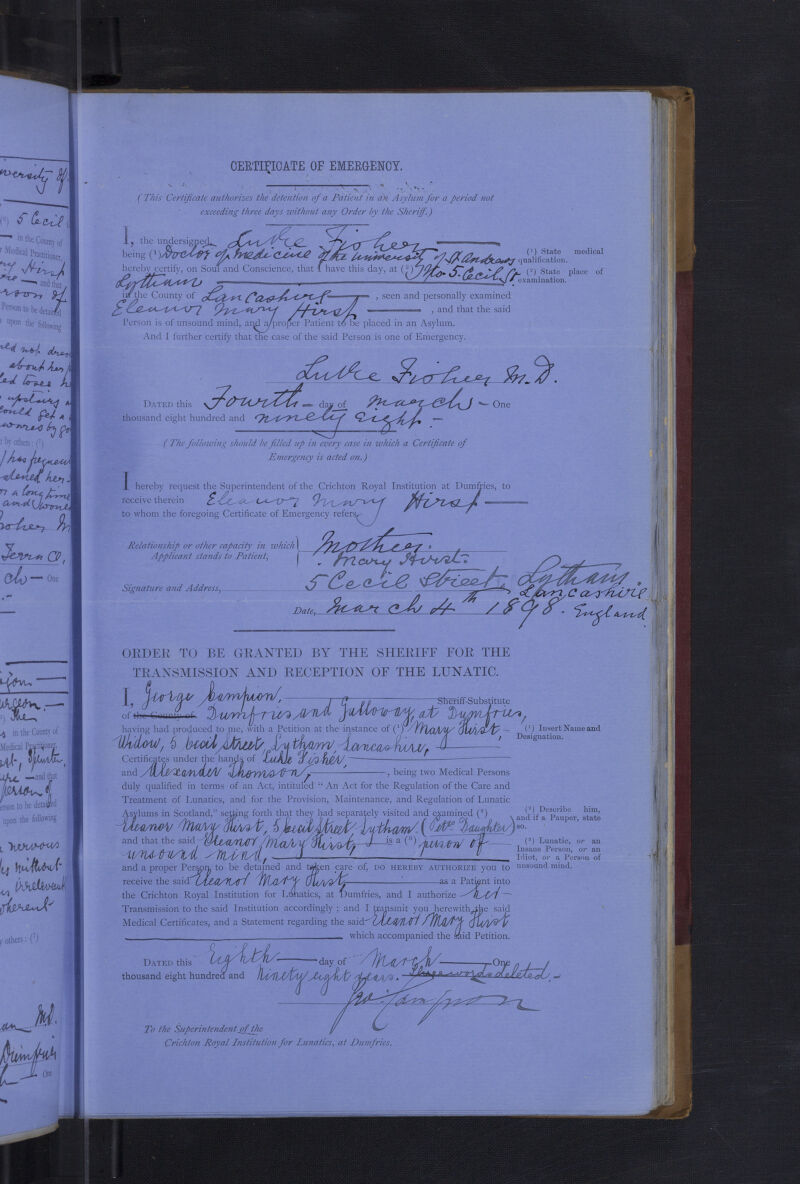 CERTIFICATE OF EMERGENCY.
(This Certificate authorizes the detention of a Patient in an Asylum for a period not
exceeding three days without any Order by the Sheriff.)
I, the undersigned, Luke Fisher
being (¹) Doctor of Medicine of the University of St. Andrews
(¹) State medical
qualification.
hereby certify, on Soul and Conscience, that I have this day, at (²) No 5. Cecil St
(²) State place of
examination.
Lytham
in the County of Lancashire, seen and personally examined
Eleanor Mary Hirst, and that the said
Person is of unsound mind, and a proper Patient to be placed in an Asylum.
And I further certify that the case of the said Person is one of Emergency.
Luke Fisher M.D.
DATED this Fourth day of March One
thousand eight hundred and ninety eight.
(The following should be filled up in every case in which a Certificate of
Emergency is acted on.)
I hereby request the Superintendent of the Crichton Royal Institution at Dumfries, to
receive therein Eleanor Mary Hirst
to whom the foregoing Certificate of Emergency refers,
Relationship or other capacity in which
Applicant stands to Patient,
Mother.
Mary Hirst.
Signature and Address, 5 Cecil Street, Lytham,
Lancashire
Date, March 4th 1898. England
ORDER TO BE GRANTED BY THE SHERIFF FOR THE
TRANSMISSION AND RECEPTION OF THE LUNATIC.
I, George Campion, Sheriff-Substitute
of the County of Dumfries and Galloway, at Dumfries,
having had produced to me, with a Petition at the instance of (¹) Mary Hirst,
(¹) Insert Name and
Designation.
Widow, 5 Cecil Street, Lytham, Lancashire,
Certificates under the hands of Luke Fisher,
and Alexander Thomson, being two Medical Persons
duly qualified in terms of an Act, intituled "An Act for the Regulation of the Care and
Treatment of Lunatics, and for the Provision, Maintenance, and Regulation of Lunatic
Asylums in Scotland," setting forth that they had separately visited and examined (²)
(²) Describe him,
and if a Pauper, state
so.
Eleanor Mary Hirst, 5 Cecil Street, Lytham (Petrs Daughter)
and that the said Eleanor Mary Hirst, is a (³) person of
(³) Lunatic, or an
Insane Person, or an
Idiot, or a Person of
unsound mind.
unsound mind,
and a proper Person to be detained and taken care of, DO HEREBY AUTHORIZE you to
receive the said Eleanor Mary Hirst, as a Patient into
the Crichton Royal Institution for Lunatics, at Dumfries, and I authorize her
Transmission to the said Institution accordingly; and I transmit you herewith the said
Medical Certificates, and a Statement regarding the said Eleanor Mary Hirst
which accompanied the said Petition.
DATED this Eighth day of March One
thousand eight hundred and ninety eight years. Three words deleted.
Geo. Campion
To the Superintendent of the
Crichton Royal Institution for Lunatics, at Dumfries.